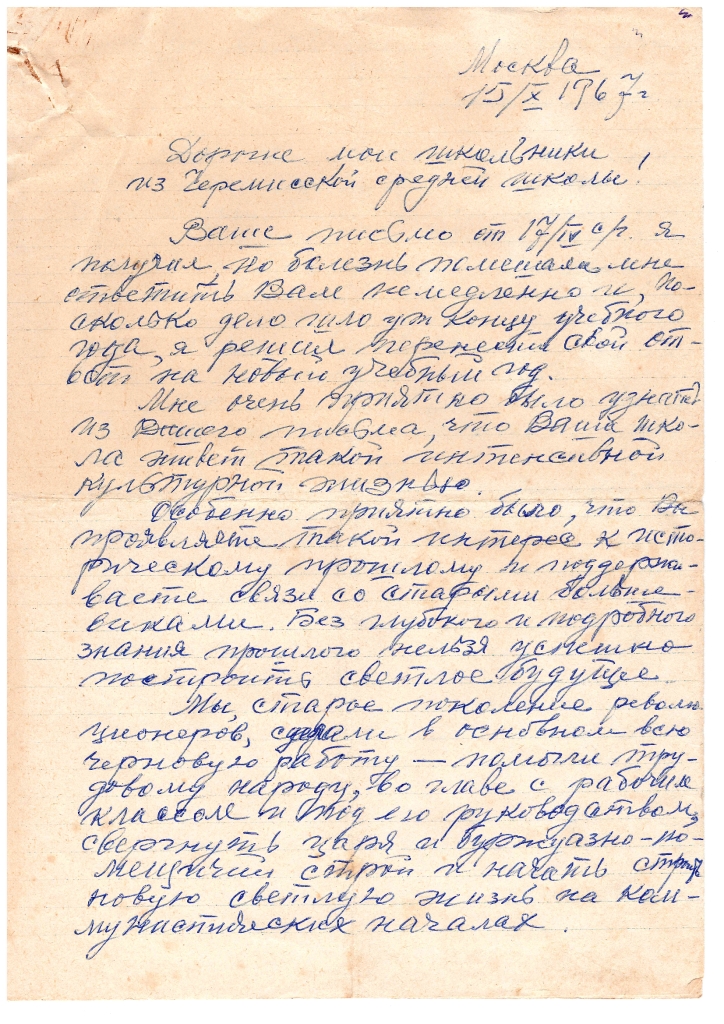 Москва
15/X 1967 г
Дорогие мои школьники
из Черемисской средней школы!
Ваше письмо от 17/IV с/г. я
получил, но болезнь помешала мне
ответить Вам немедленно и, по-
скольку дело шло уж концу учебного
года, я решил перенести свой от-
вет на новый учебный год.
Мне очень приятно было узнать
из Вашего письма, что Ваша шко-
ла живет такой интенсивной
культурной жизнью.
Особенно приятно было, что Вы
проявляете такой интерес к исто-
рическому прошлому и поддержи-
ваете связи со старыми больше-
виками. Без глубокого и подробного
знания прошлого нельзя успешно
построить светлое будущее.
Мы, старое поколение револю-
ционеров, сделали в основном всю
черновую работу — помогли тру-
довому народу, во главе с рабочим
классом и под его руководством,
свергнуть царя и буржуазно-по-
мещичий строй и начать строить
новую светлую жизнь на ком-
мунистических началах.